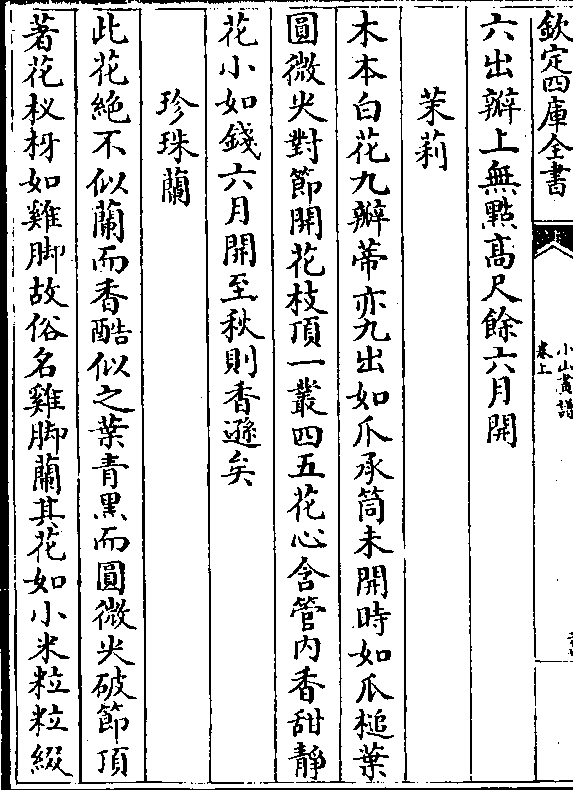 欽定四庫全書
小山畫譜
卷上
六出瓣上無點高尺餘六月開
茉莉
木本白花九瓣蒂亦九出如爪承筒未開時如瓜槌葉
圓微尖對節開花枝頂一叢四五花心含管內香甜靜
花小如錢六月開至秋則香遜矣
珍珠蘭
此花絕不似蘭而香酷似之葉青黑而圓微尖破節頂
著花杈枒如雞脚故俗名雞脚蘭其花如小米粒粒綴